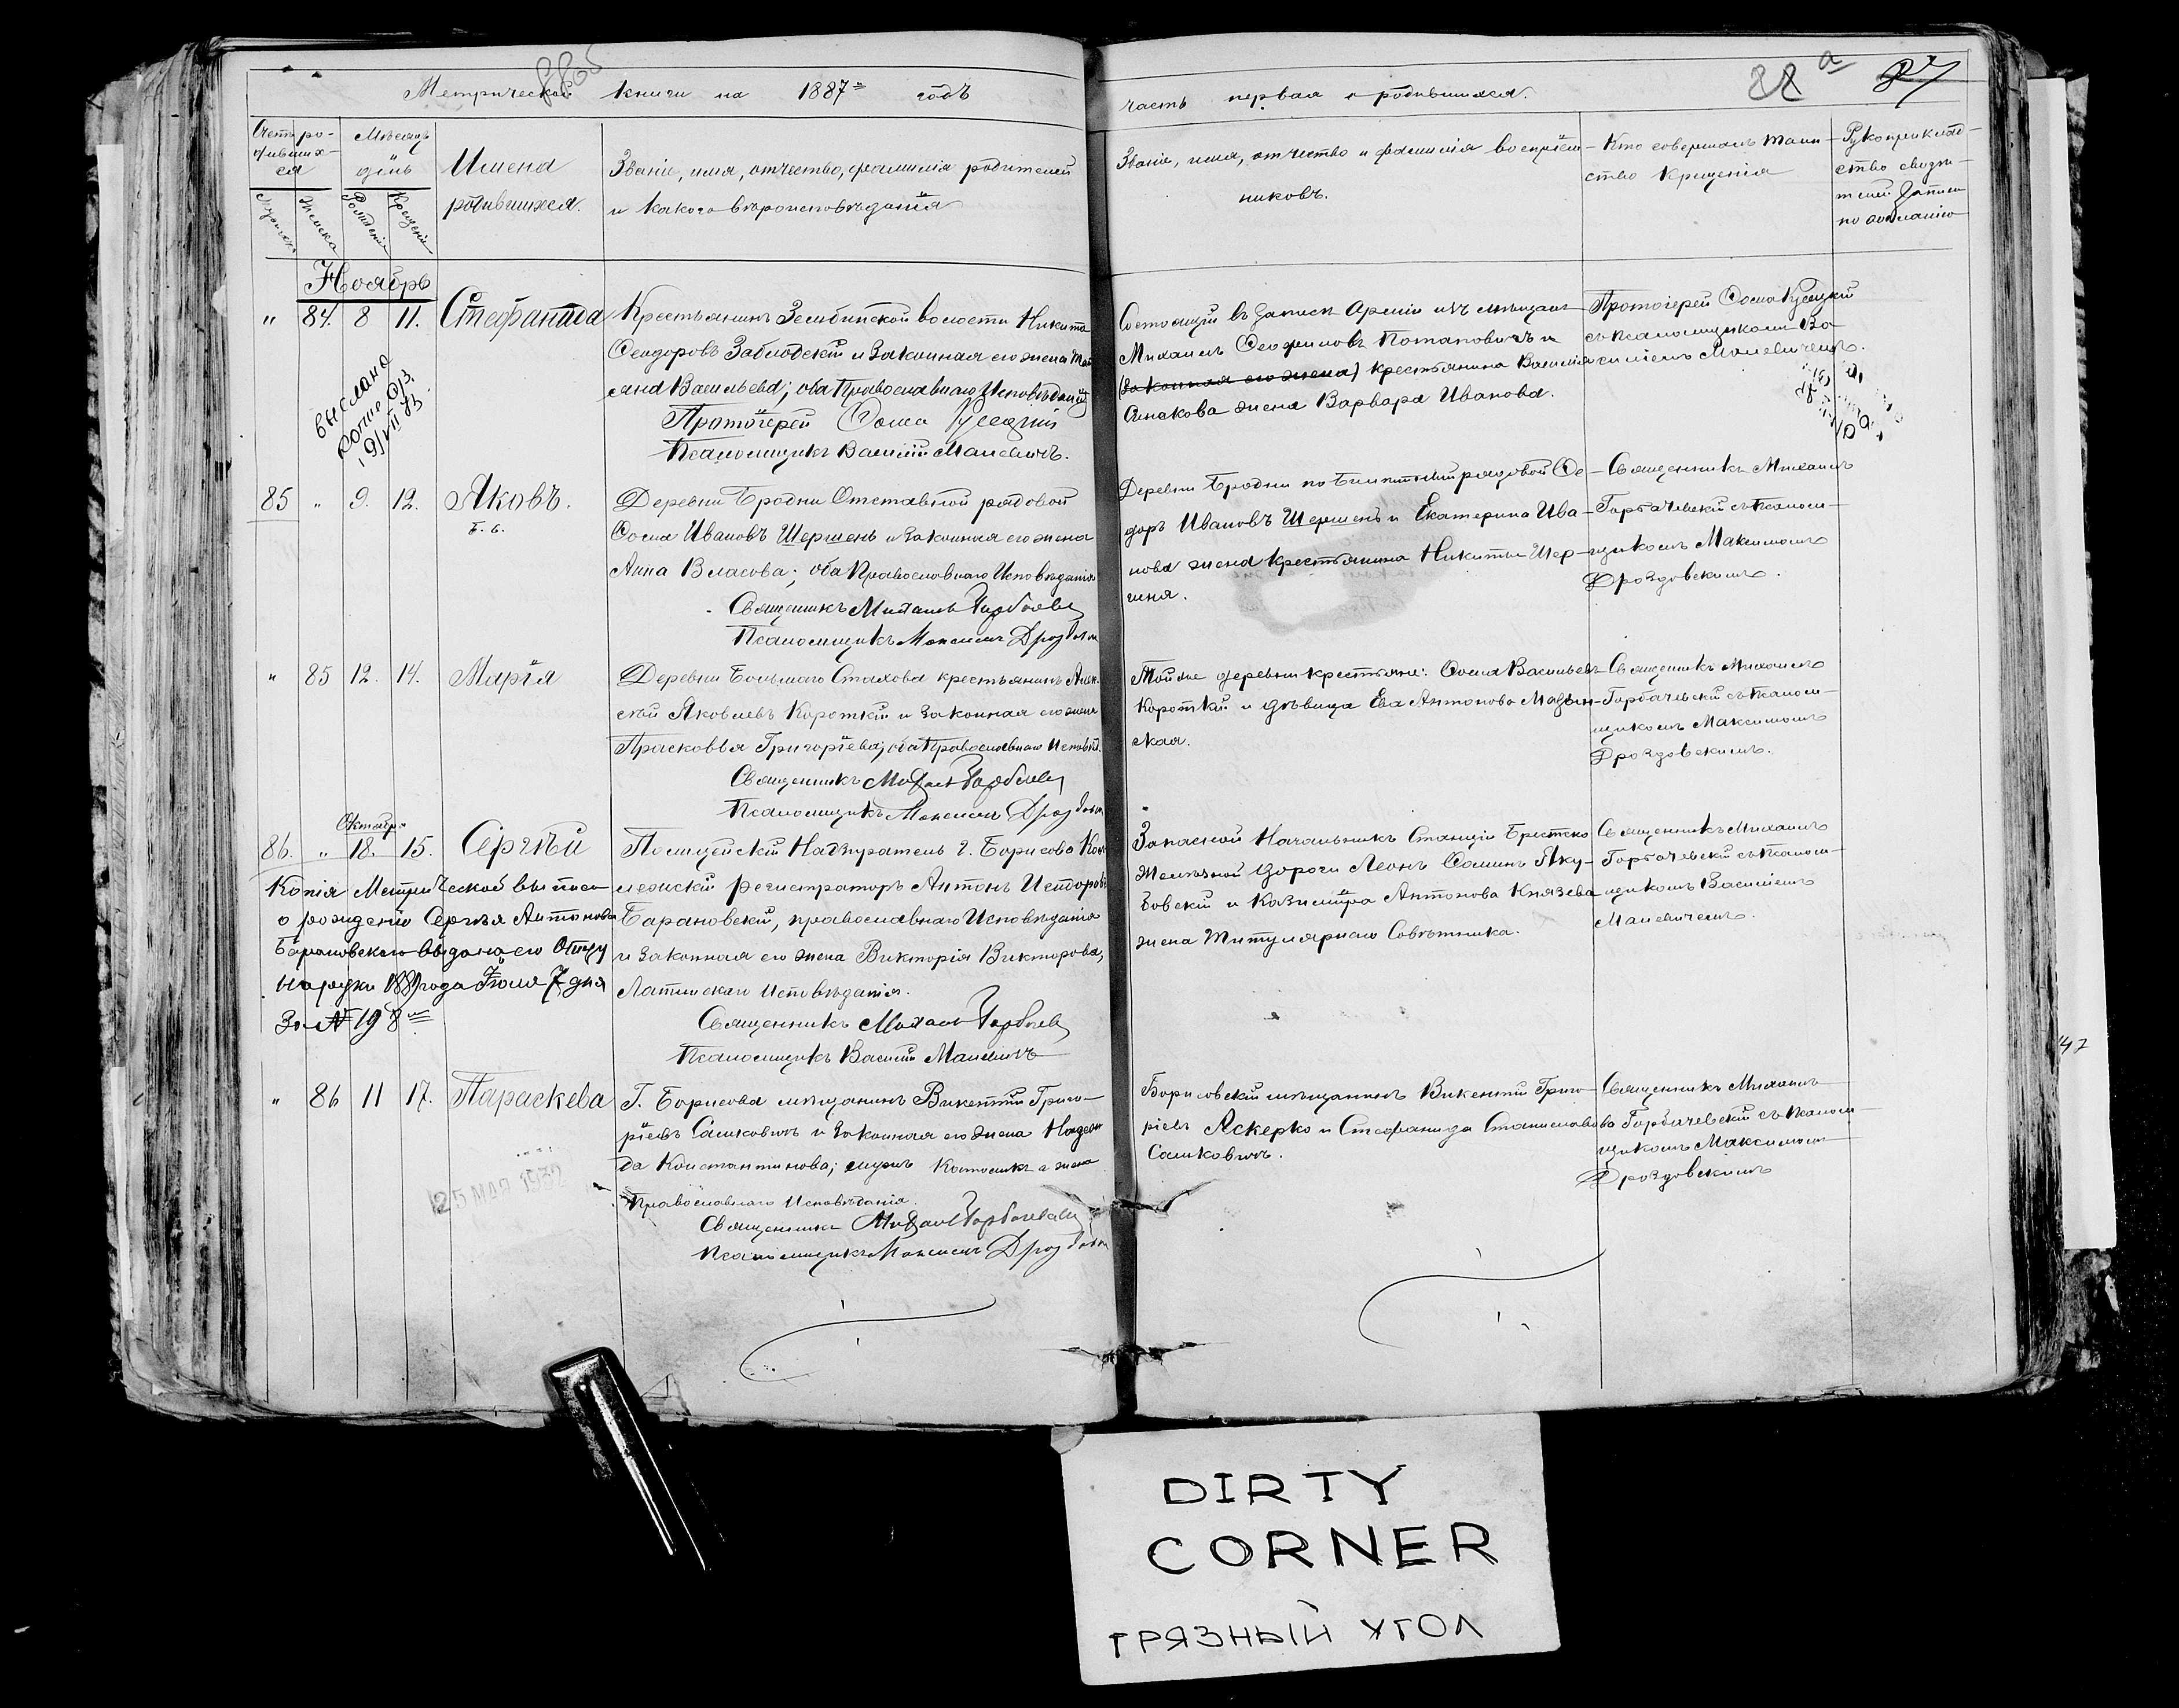 Метрической книги на 1887 годъ
часть первая о родившихся.
88 а
87
Счетъ ро-
дивших-
ся
Мѣсяцъ
и
день
Имена
родившихся.
Званіе, имя, отчество, фамилія родителей
и какого вѣроисповѣданія
Званіе, имя, отчество и фамилія воспріем-
никовъ.
Кто совершалъ таин-
ство крещенія
Рукоприклад-
ство свидѣ-
телей записи
по желанію
Женска
Рожденія
Крещенія
Ноябрь
" 84. 8 11. Стефанида
Крестьянинъ Зембинской волости Никита
Ѳеодоровъ Заблодскій и законная его жена
Васильева; оба Православнаго Исповѣданія
Протоіерей Ѳома Русецкій
Псаломщикъ Василій Малевичъ.
Состоящій въ запасѣ Арміи изъ мѣщанъ
Михаилъ Ѳеофиловъ Потаповичъ и
(законная его жена) крестьянина Василія
жена Варвара Иванова.
Протоіерей Ѳома Русецкій
съ псаломщикомъ Ва-
силіемъ Малевичемъ.
выслана
копия
85 " 9. 12. Яковъ.
Деревни Бродни Отставной рядовой
Ѳома Ивановъ Шершень и законная его жена
Анна Власова; оба Православнаго Исповѣданія
Священникъ Михаилъ Горбачевскій
Псаломщикъ Максимъ Дроздовскій
Деревни Бродни рядовой Ѳе-
доръ Ивановъ Шершень и Екатерина Ива-
нова жена крестьянина Никиты Шер-
шня.
Священникъ Михаилъ
Горбачевскій съ псалом-
щикомъ Максимомъ
Дроздовскимъ.
" 85 12. 14. Марія
Деревни Большаго Стахова крестьянинъ Алек-
сѣй Яковлевъ Короткій и законная его жена
Прасковья Григоріева; оба Православнаго Исповѣд.
Священникъ Михаилъ Горбачевскій
Псаломщикъ Максимъ Дроздовскій
Той же деревни крестьяне: Ѳома Васильевъ
Короткій и дѣвица Ева Антонова
ская.
Священникъ Михаилъ
Горбачевскій съ псалом-
щикомъ Максимомъ
Дроздовскимъ.
Октябр.
86. " 18. 15. Сергѣй
Полицейскій Надзиратель г. Борисова Кол-
лежскій регистраторъ Антонъ
Барановскій, православнаго Исповѣданія
и законная его жена Викторія Викторова,
Латинскаго Исповѣданія.
Священникъ Михаилъ Горбачевскій
Псаломщикъ Василій Малевичъ
Запасной Начальникъ Станціи Брестско
Желѣзной дороги Леонъ Яку-
бовскій и Казиміра Антонова Князева
жена Титулярнаго Совѣтника.
Священникъ Михаилъ
Горбачевскій съ псалом-
щикомъ Василіемъ
Малевичемъ.
Копія Метрической выписи
о рожденіи Сергѣя Антонова
Барановскаго выдана его Отцу
на руки года Іюля 7 дня
За № 198
" 86 11 17. Параскева
Г. Борисова мѣщанинъ Викентій Григо-
ріевъ Сашковичъ и законная его жена Надеж-
да Константинова; мужъ Католикъ а жена
Православнаго Исповѣданія.
Священникъ Михаилъ Горбачевскій
Псаломщикъ Максимъ Дроздовскій
Борисовскій мѣщанинъ Викентій Григо-
ріевъ Аскерко и Стефанида Станиславова
Сашковичъ.
Священникъ Михаилъ
Горбачевскій съ псалом-
щикомъ Максимомъ
Дроздовскимъ
25 МАЯ 1932
47
DIRTY
CORNER
ГРЯЗНЫЙ УГОЛ